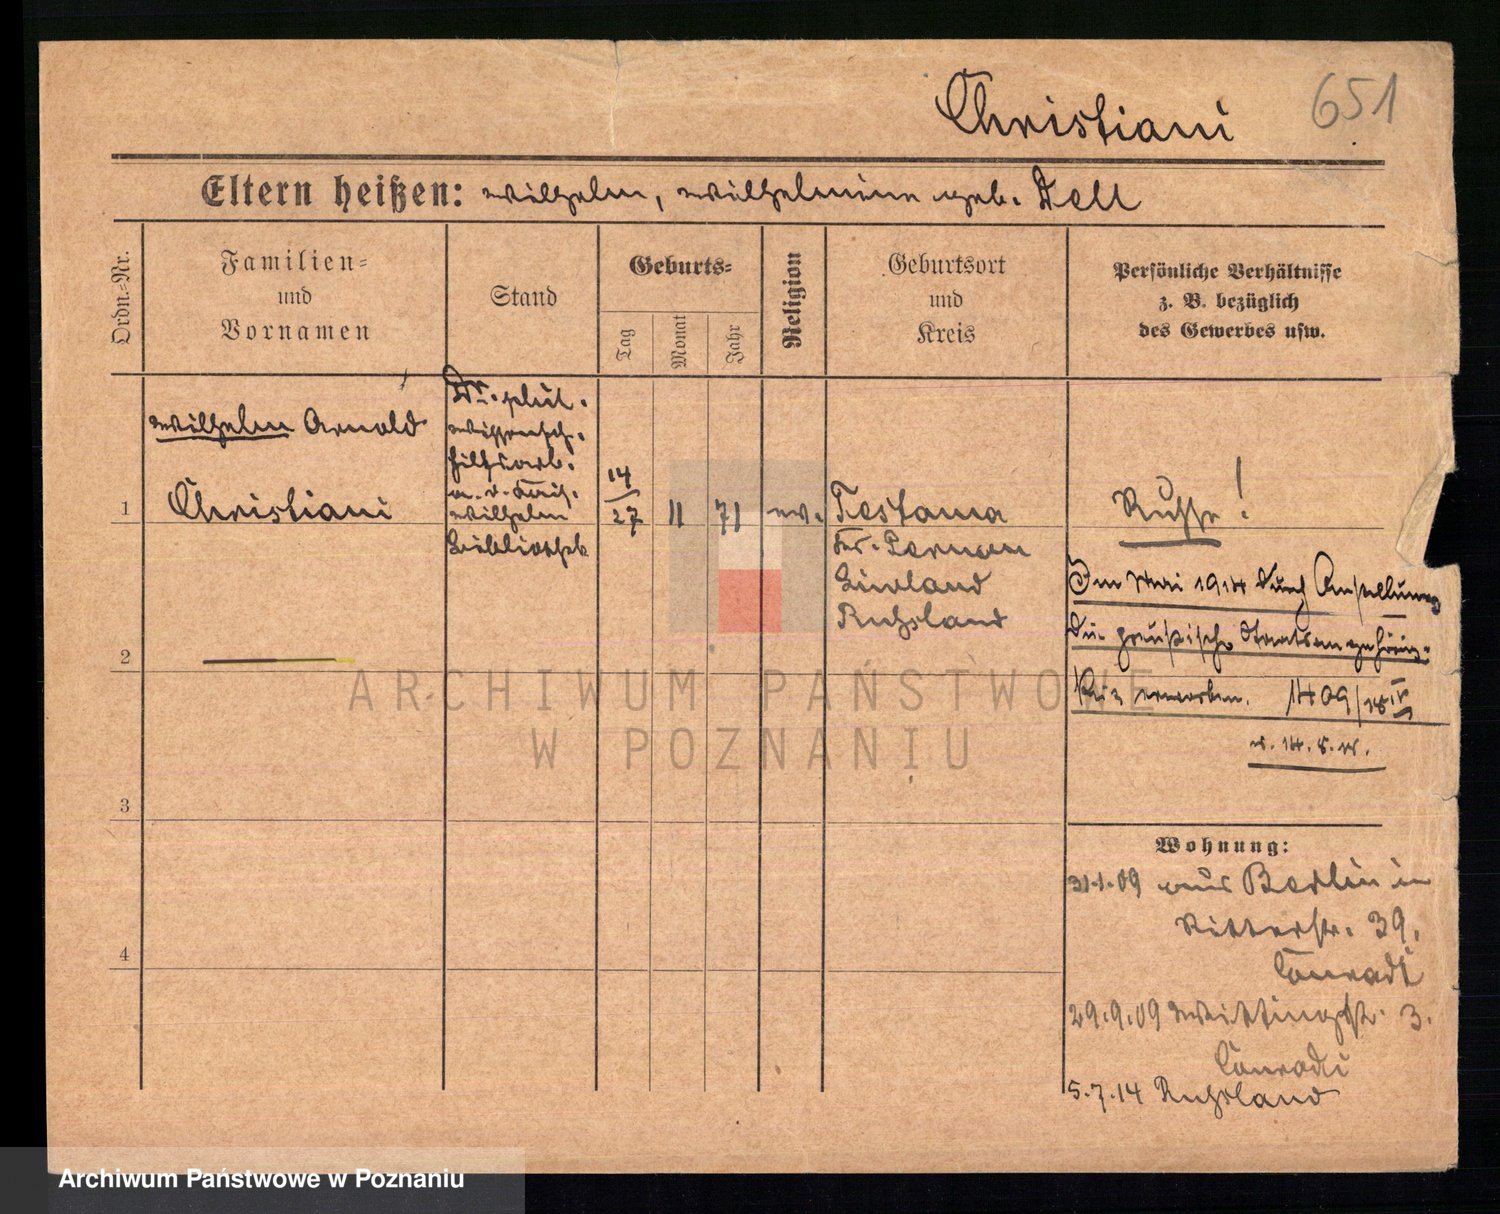 Christiani 651
Eltern heißen: Wilhelm, Wilhelmine geb. Dell
Ordn.-Nr.
Familien-
und
Vornamen
Stand
Geburts-
Tag
Monat
Jahr
Religion
Geburtsort
und
Kreis
Persönliche Verhältnisse
z. B. bezüglich
des Gewerbes usw.
1
Wilhelm Arnold
Christiani
Dr. phil.
wissensch.
Hilfsarb.
a. d. Kais.
Wilhelm
Bibliothek
14
27
11
71
ev.
Testama
Kr. Pernau
Livland
Russland
Russe!
Im Mai 1914 durch Anstellung
die preußische Staatsangehörig-
keit erworben. 1409/18
2
3
4
Wohnung:
31.1.09 aus Berlin in
Ritterstr. 39.
Conradi
29.9.09 Wittingstr. 3.
Conradi
5.7.14 Russland
ARCHIWUM PAŃSTWOWE
W POZNANIU
Archiwum Państwowe w Poznaniu